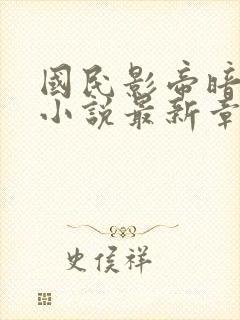 國民影帝暗
小說最新章
史侯祥